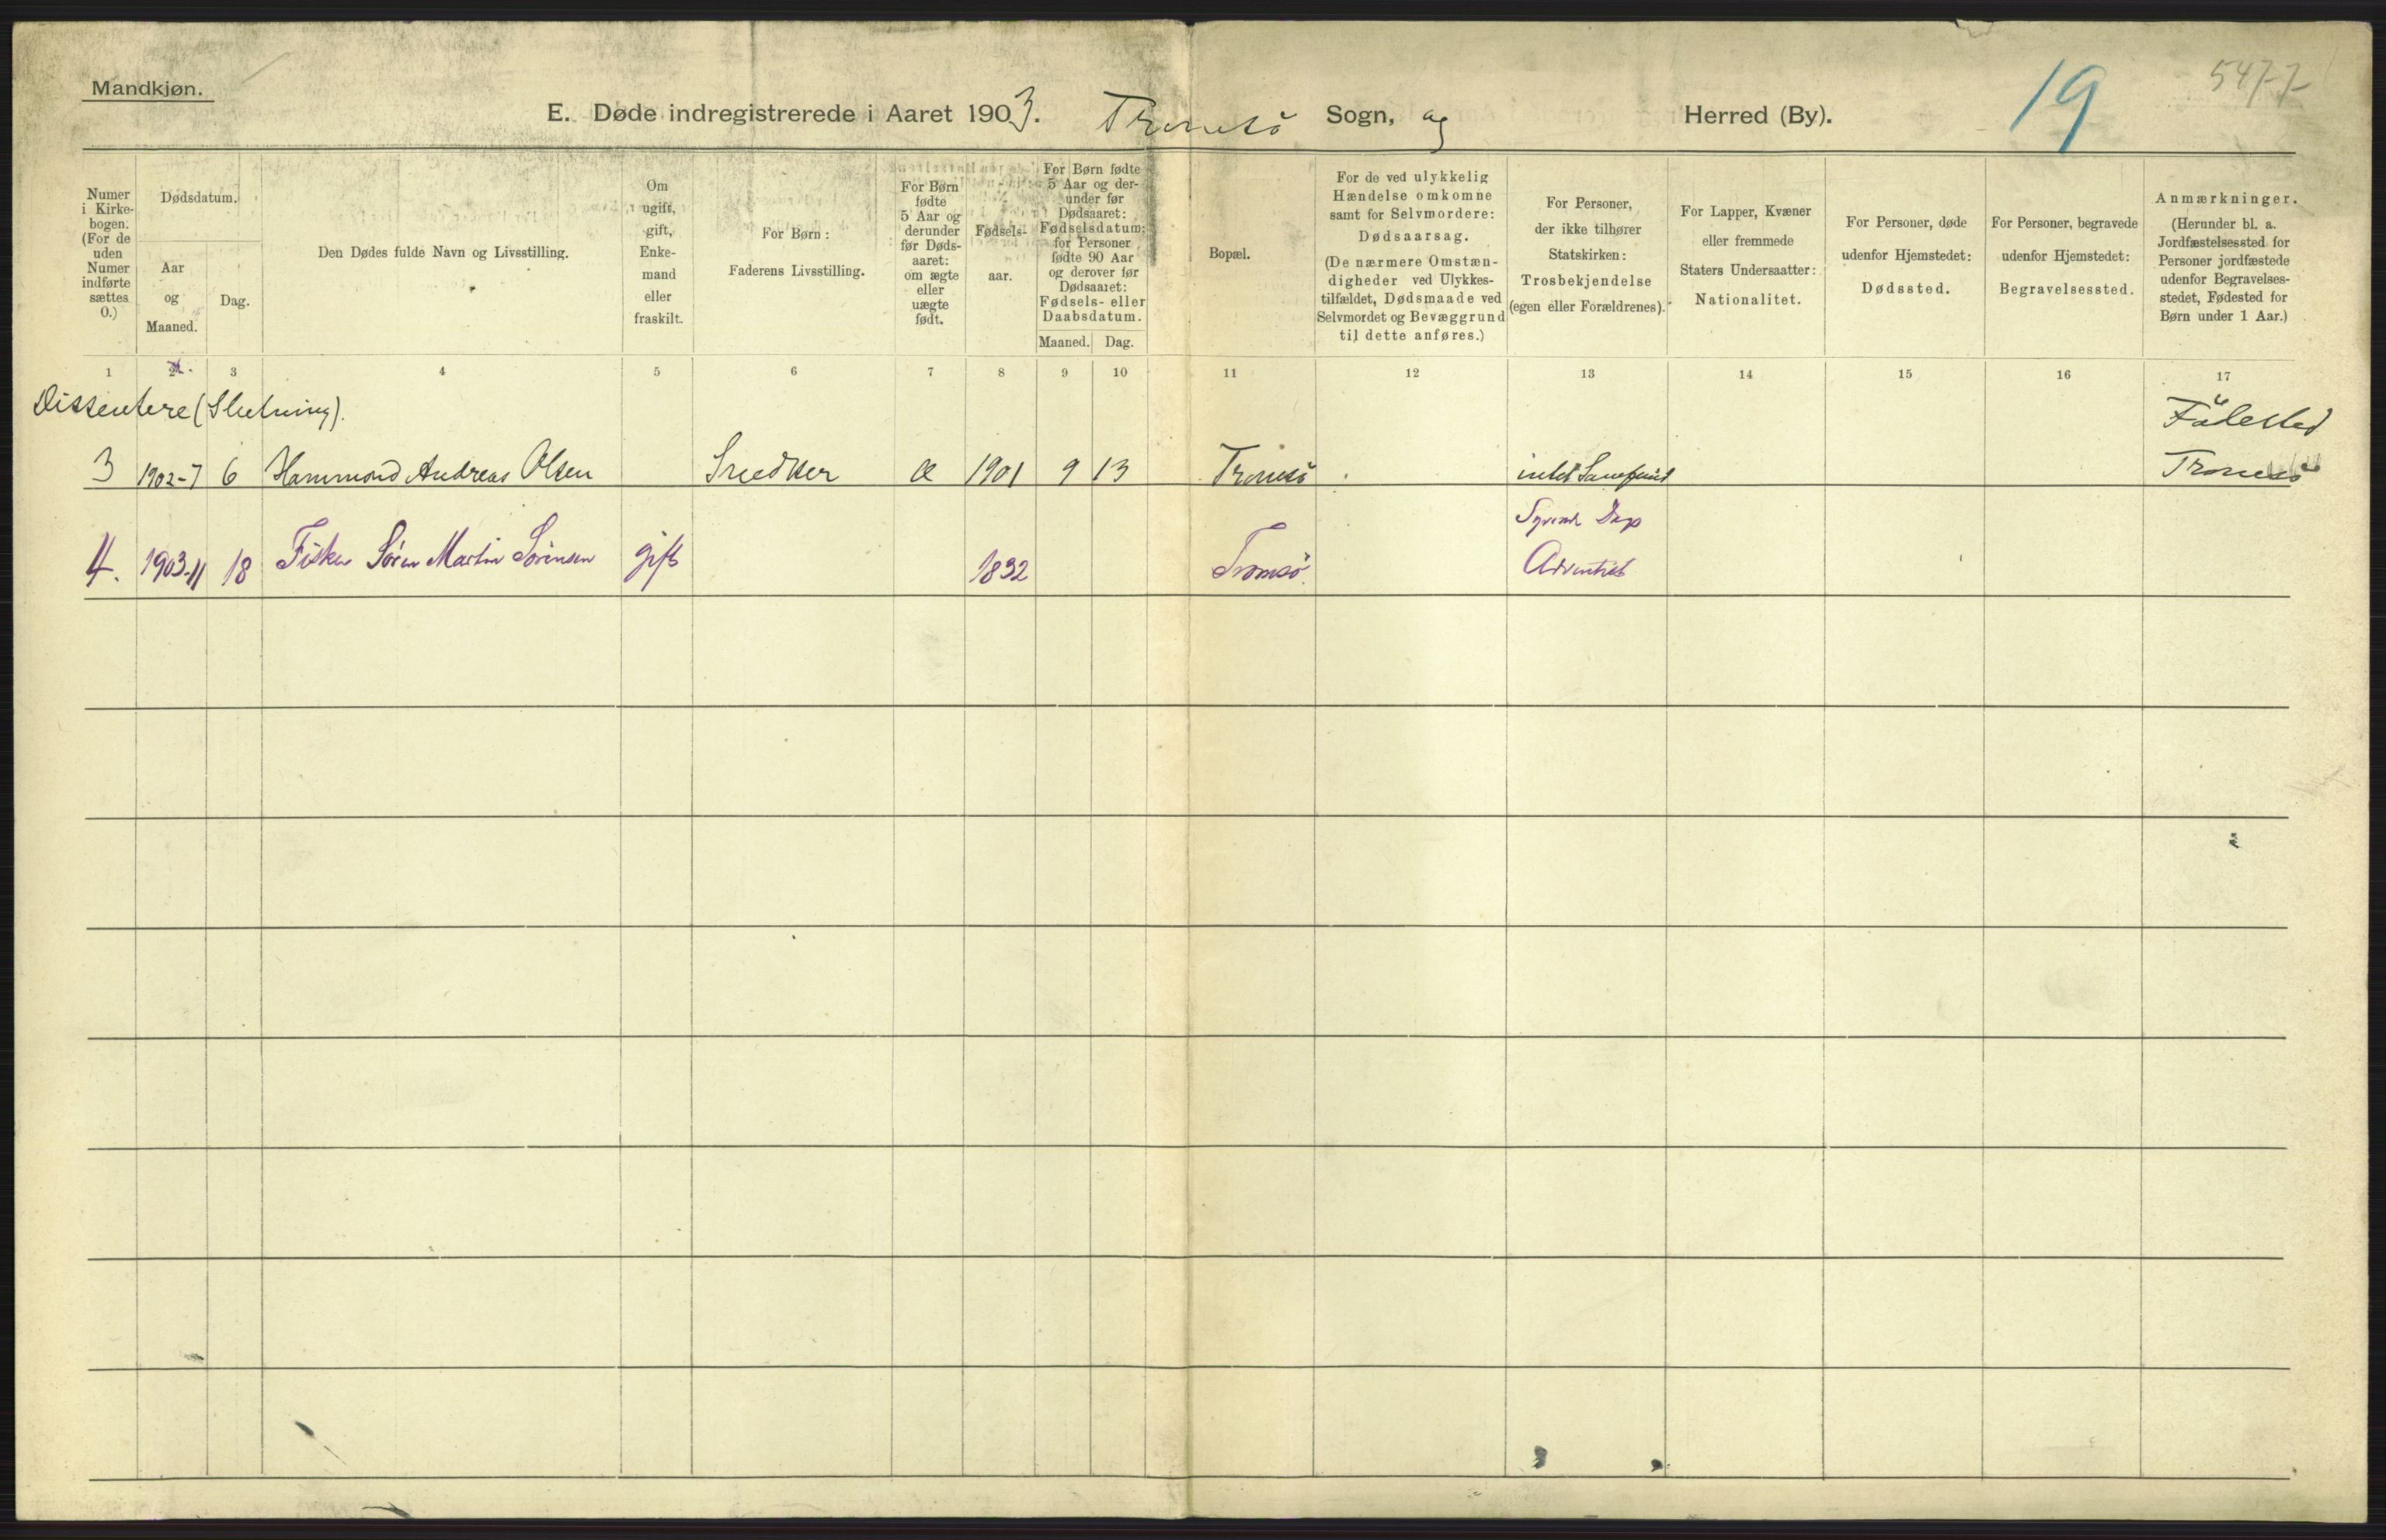 Mandkjøn.
E. Døde indregistrerede i Aaret 1903. Tromsö Sogn, og Herred (By).
19
547-7
Numer
i Kirke-
bogen.
(For de
uden
Numer
indførte
sættes
0.)
Dødsdatum.
Aar
og
Maaned.
Dag.
Den Dødes fulde Navn og Livsstilling.
Om
ugift,
gift,
Enke-
mand
eller
fraskilt.
For Børn:
Faderens Livsstilling.
For Børn
fødte
5 Aar og
derunder
før Døds-
aaret:
om ægte
eller
uægte
født.
Fødsels-
aar.
For Børn fødte
5 Aar og der-
under før
Dødsaaret:
Fødselsdatum;
for Personer
fødte 90 Aar
og derover før
Dødsaaret:
Fødsels- eller
Daabsdatum.
Maaned. Dag.
Bopæl.
For de ved ulykkelig
Hændelse omkomne
samt for Selvmordere:
Dødsaarsag.
(De nærmere Omstæn-
digheder ved Ulykkes-
tilfældet, Dødsmaade ved
Selvmordet og Bevæggrund
til dette anføres.)
For Personer,
der ikke tilhører
Statskirken:
Trosbekjendelse
(egen eller Forældrenes).
For Lapper, Kvæner
eller fremmede
Staters Undersaatter:
Nationalitet.
For Personer, døde
udenfor Hjemstedet:
Dødssted.
For Personer, begravede
udenfor Hjemstedet:
Begravelsessted.
Anmærkninger.
(Herunder bl. a.
Jordfæstelsessted for
Personer jordfæstede
udenfor Begravelses-
stedet, Fødested for
Børn under 1 Aar.)
1 2 3 4 5 6 7 8 9 10 11 12 13 14 15 16 17
Dissentere (Slutning).
Födested
3 1902-7 6 Hammond Andreas Olsen Snedker Æ 1901 9 13 Tromsö intet Samfund Tromsö
Syvende Dags
4. 1903-11 18 Fisker Sören Martin Sörensen gift 1832 Tromsö. Adventist